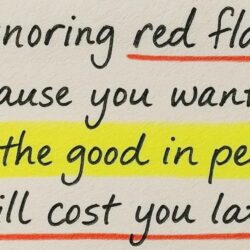 noring red fla
ause you want
the good in pe
ill cost you lat